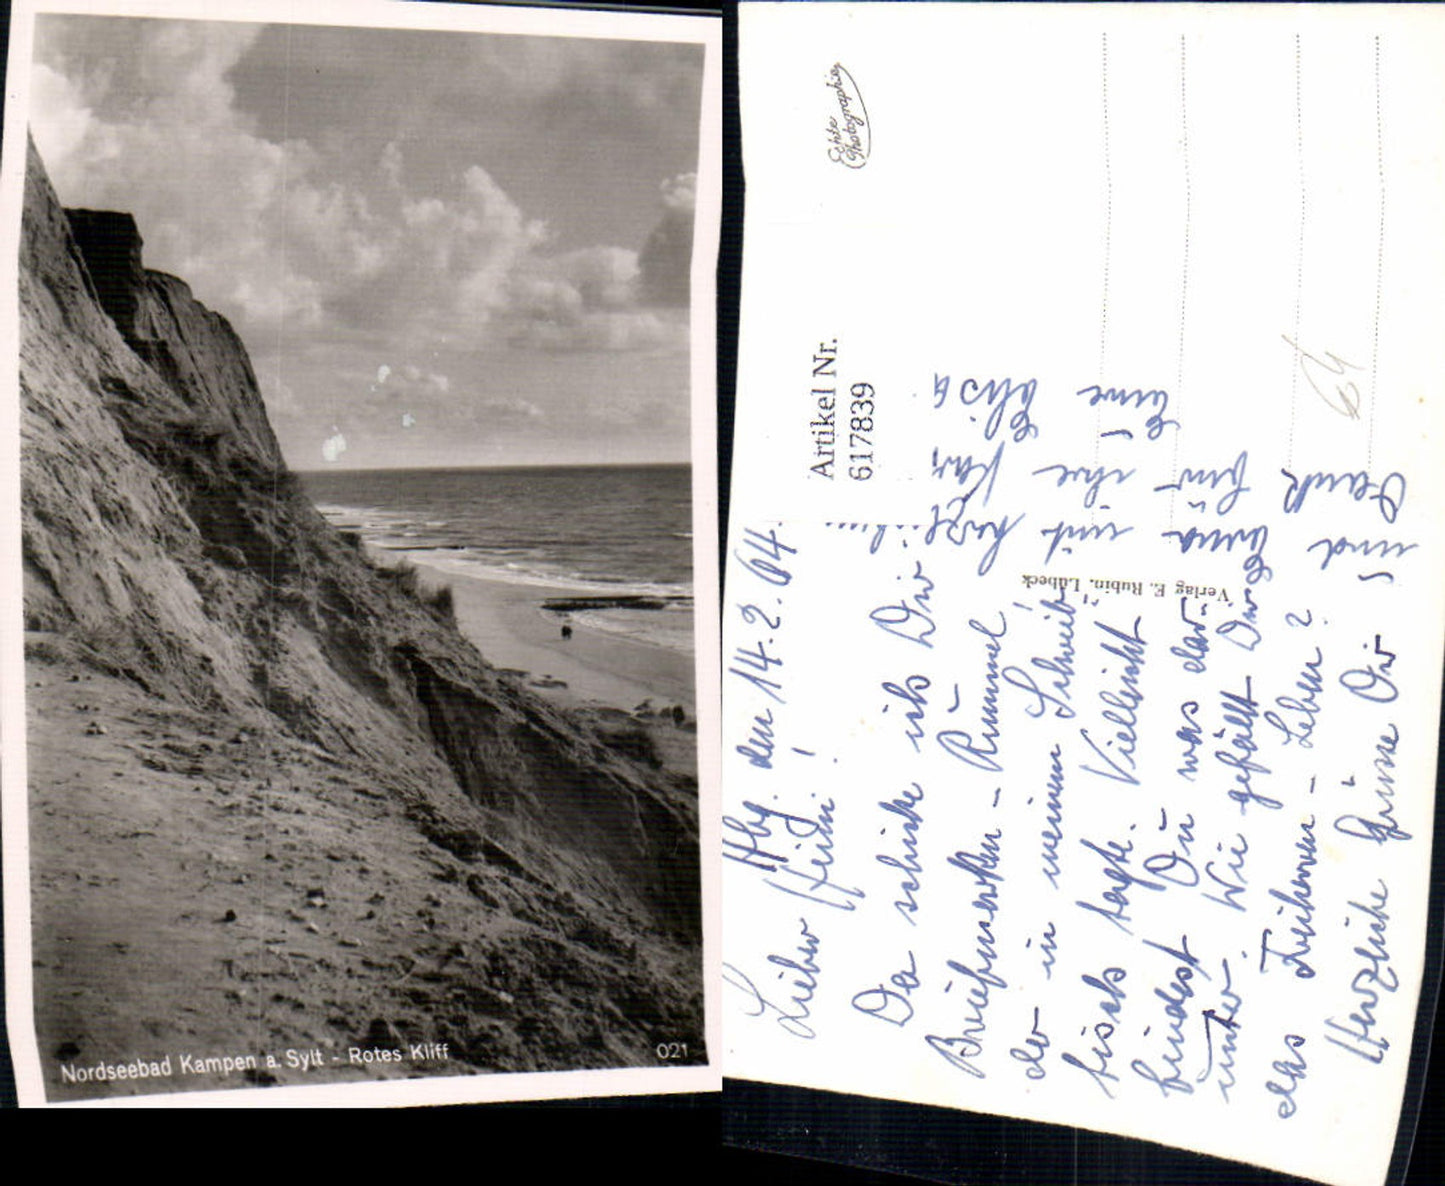 Nordseebad Kampen a. Sylt - Rotes Kliff
021
Echte
Photographie
Artikel Nr.
617839
Verlag E. Rubin, Lübeck
64
Hbg. den 14.2.64
Lieber Heini!
Da schicke ich Dir
Briefmarken - Rummel
der in meinem Schreib-
tisch lagte. Vielleicht
findest Du was dar-
unter. Wie gefällt Dir
das Leben?
Herzliche Grüsse Dir
und
Dank für ihre
Elisa